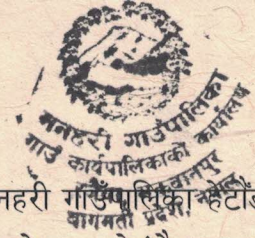 मनहरी गाउँपालिका
गाउँ कार्यपालिकाको कार्यालय
बागमती प्रदेश, नेपाल
नहरी गाउँपालिका हेटौंड